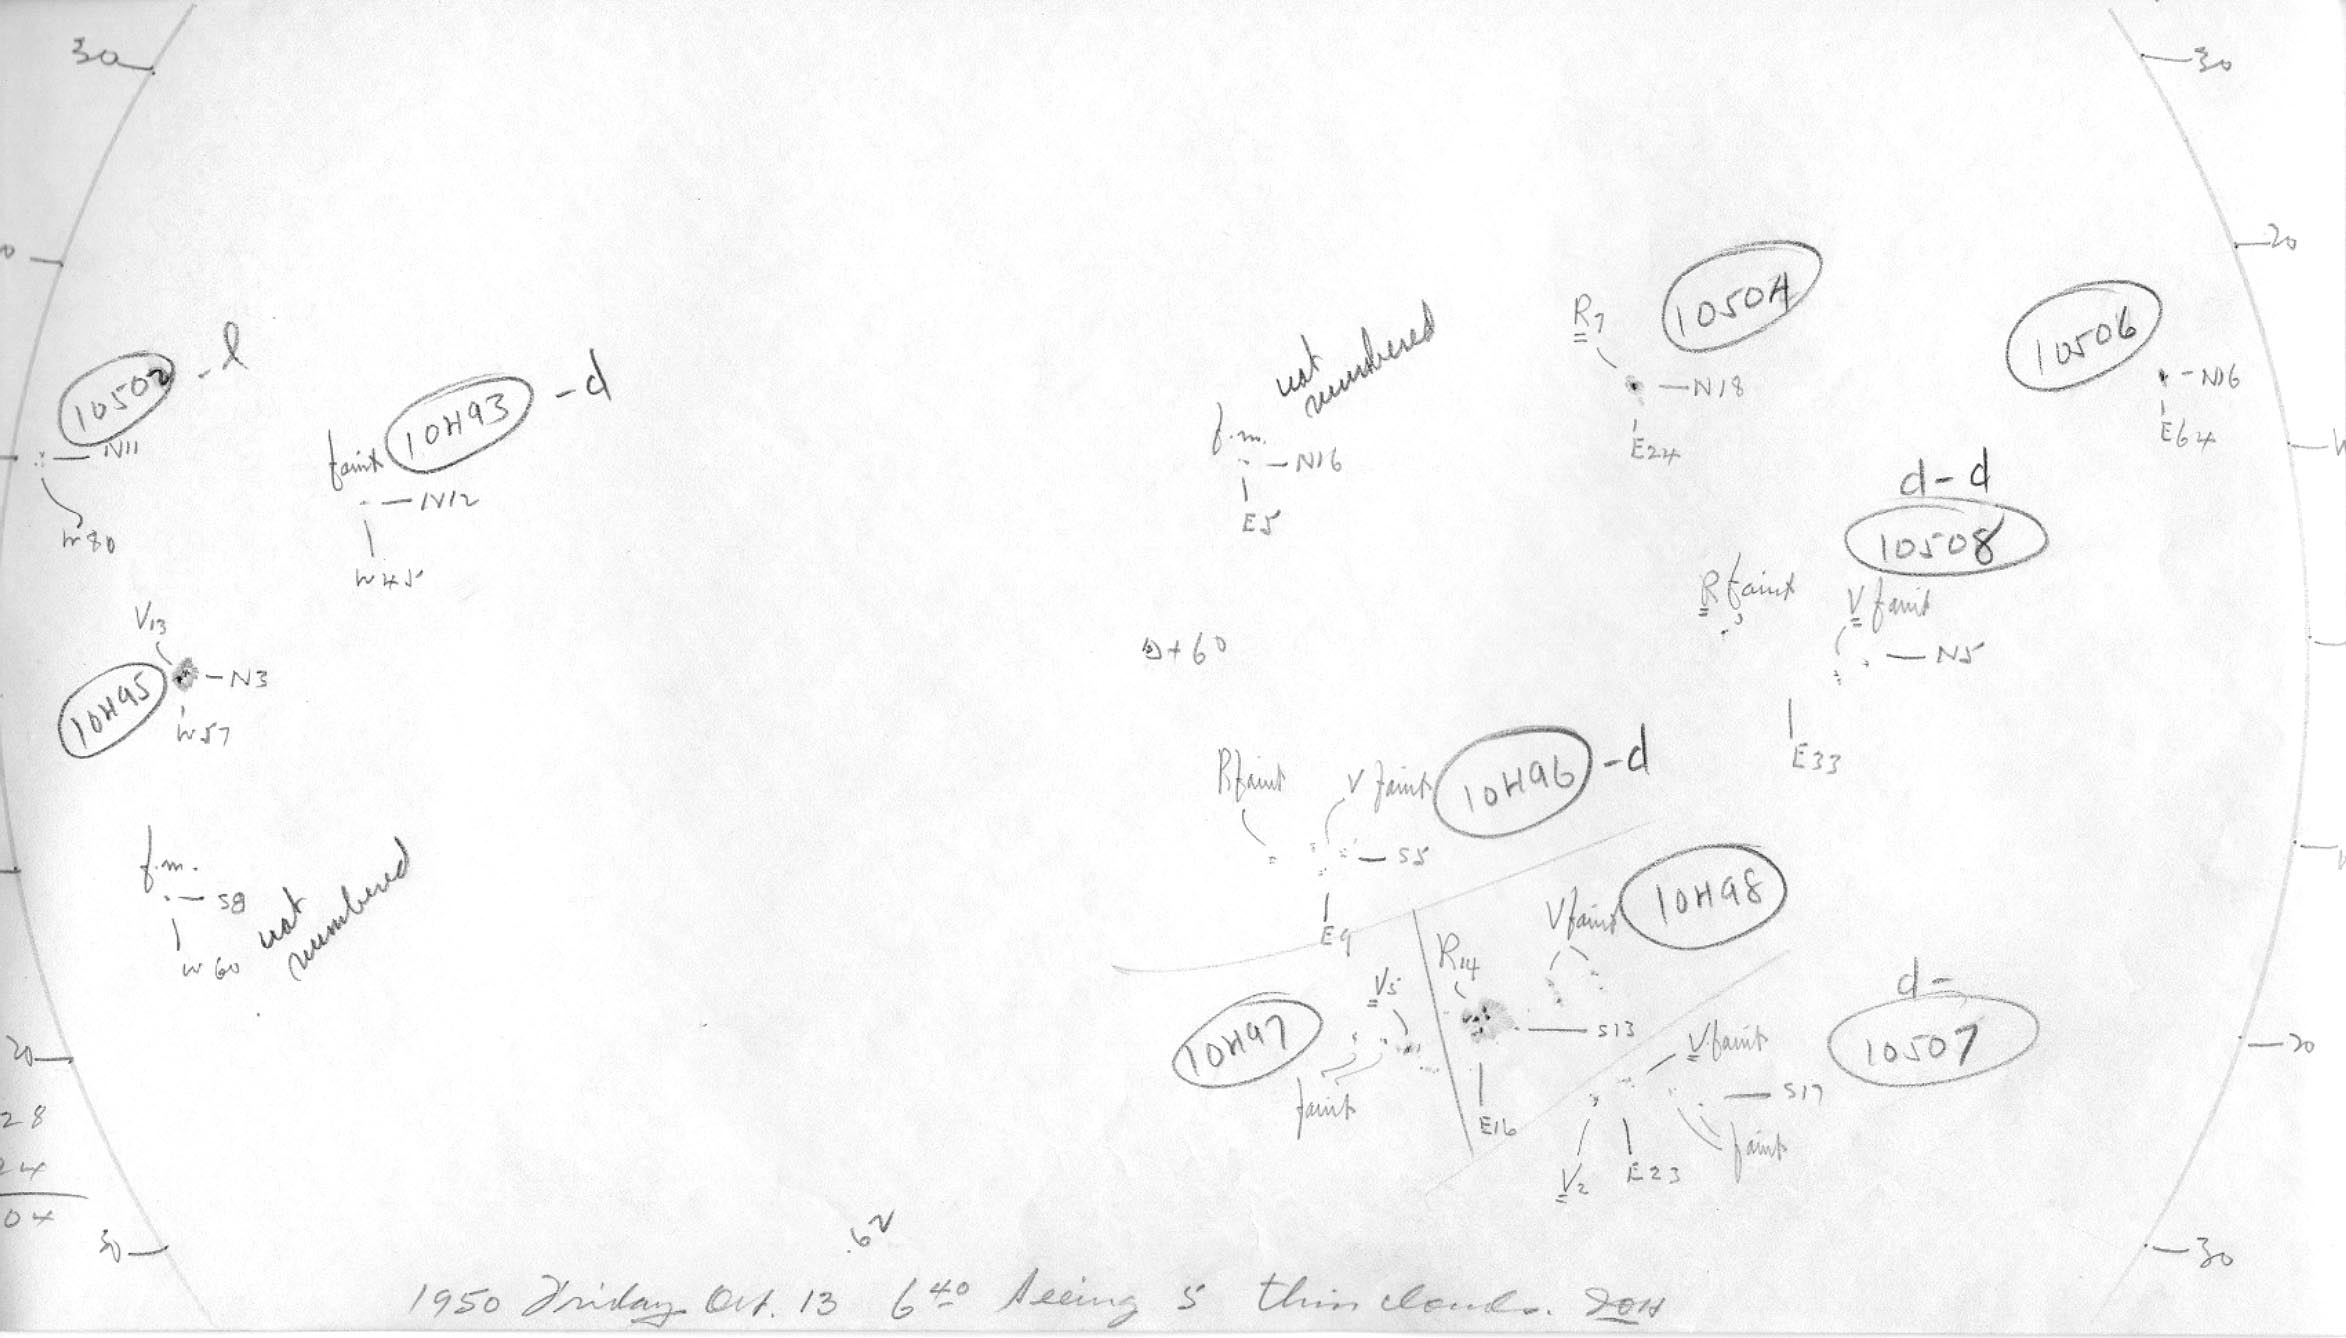 30
30
20
10504
R7
N18
E24
10506
N16
E64
not
numbered
f.m.
N16
E5
10502 - l
N11
W80
10493 - d
faint
N12
W45
d-d
10508
R faint
V faint
N5
E33
V13
10495
N3
W57
D+60
R faint
V faint
10496 -d
S5
E9
f.m.
S8
W60
not
numbered
10498
V faint
R14
S13
E16
V5
10497
faint
d-
10507
V faint
S17
V2
E23
faint
20
20
28
24
04
30
30
.62
1950 Friday Oct. 13 6 40 Seeing 5 thin clouds.